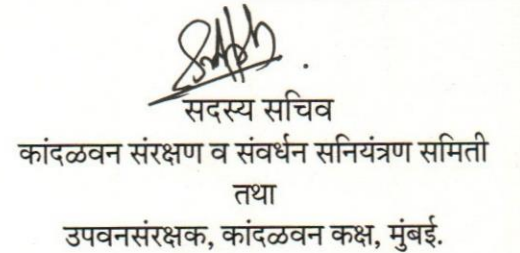 सदस्य सचिव
कांदळवन संरक्षण व संवर्धन सनियंत्रण समिती
तथा
उपवनसंरक्षक, कांदळवन कक्ष, मुंबई.